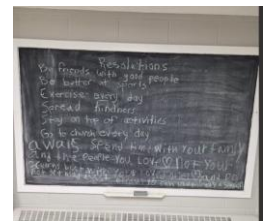 Resolutions
Be friends with good people
Be better at sports
Exercise every day
Spread kindness
Stay on top of activities
Go to church every day
always spend time with your family
and the people you love not your